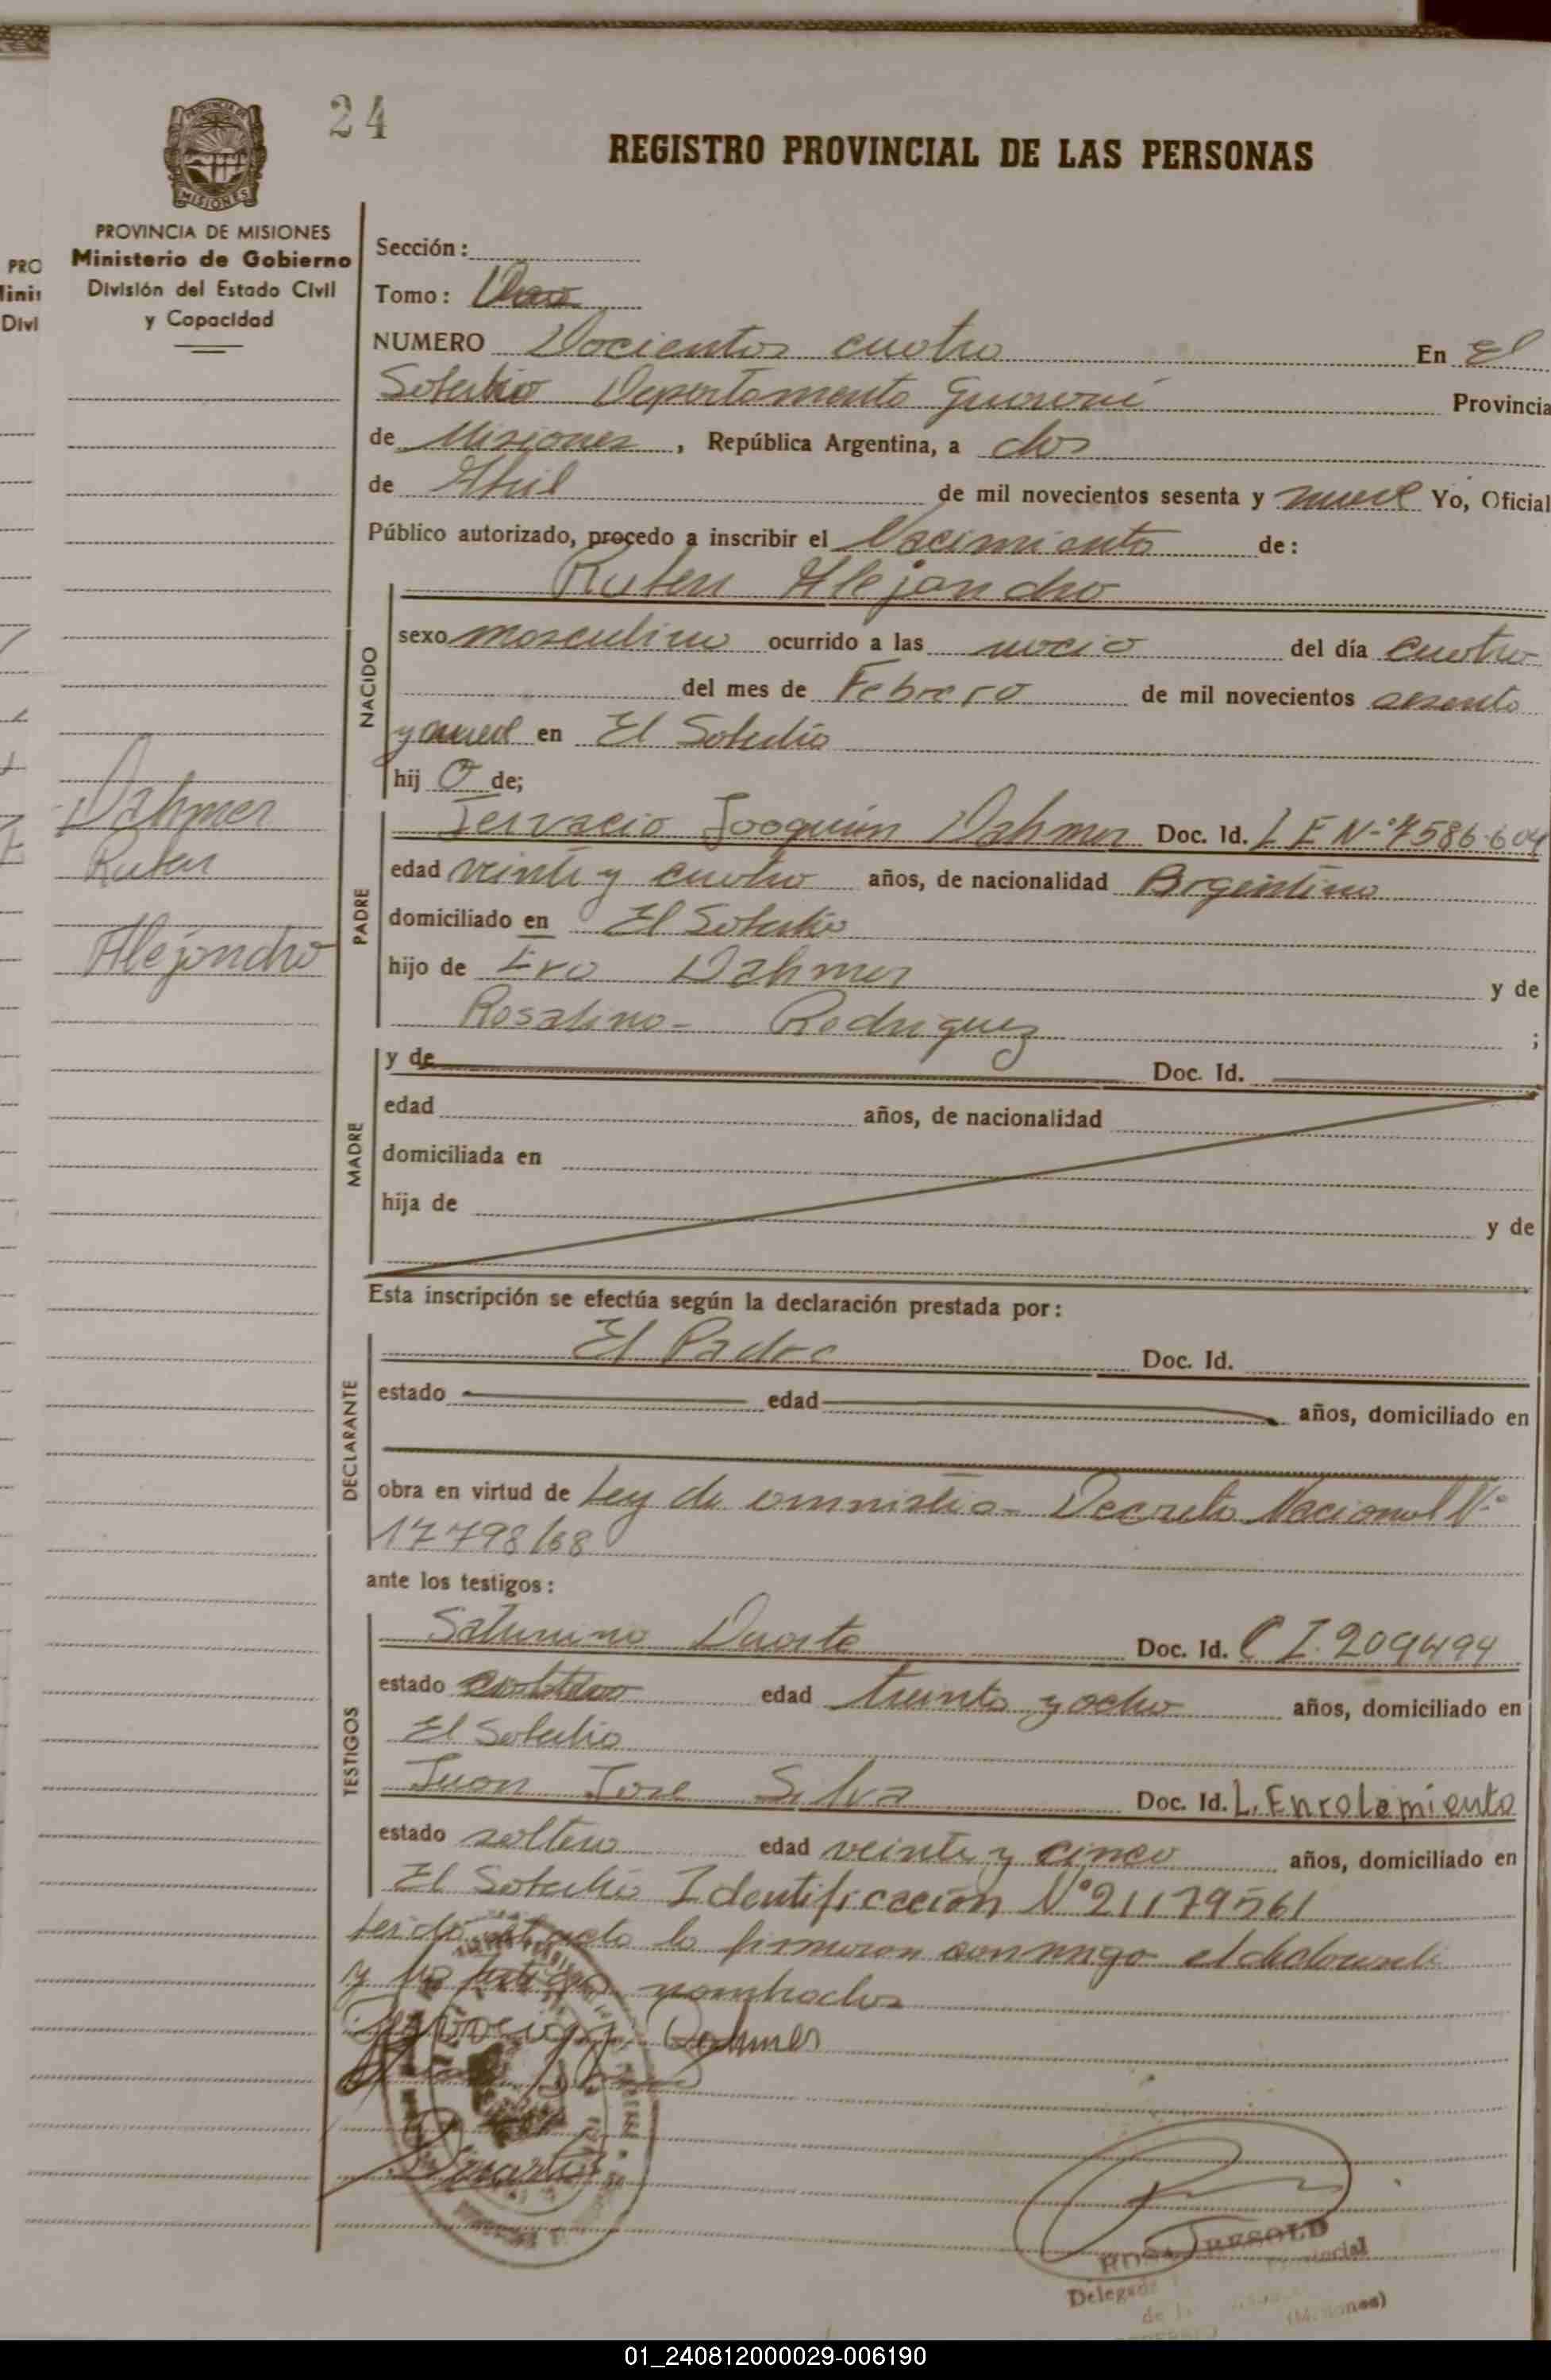 24
REGISTRO PROVINCIAL DE LAS PERSONAS
MISIONES
PROVINCIA DE MISIONES
Ministerio de Gobierno
División del Estado Civil
y Capacidad
Sección:
Tomo:
NUMERO Docientos cuatro En El
Soberbio Departamento Guarani Provincia
de Misiones, República Argentina, a dos
de Abril de mil novecientos sesenta y nueve Yo, Oficial
Público autorizado, procedo a inscribir el Nacimiento de:
Ruben Alejandro
NACIDO
sexo masculino ocurrido a las del día cuatro
del mes de Febrero de mil novecientos sesenta
y nueve en El Soberbio
hij o de;
Dahmer
Ruben
Alejandro
PADRE
Tervacio Joaquim Dahmer Doc. Id. L E N° 7586.604
edad veinte y cuatro años, de nacionalidad Argentino
domiciliado en El Soberbio
hijo de Eva Dahmer y de
Rosalino- Rodriguez ;
MADRE
y de Doc. Id.
edad años, de nacionalidad
domiciliada en
hija de y de
Esta inscripción se efectúa según la declaración prestada por:
DECLARANTE
El Padre Doc. Id.
estado edad años, domiciliado en
obra en virtud de Ley de amnistia- Decreto Nacional N°
17798/68
ante los testigos:
TESTIGOS
Saturnino Duarte Doc. Id. C I. 209494
estado edad treinta y ocho años, domiciliado en
El Soberbio
Juan Jose Silva Doc. Id. L. Enrolamiento
estado soltero edad veinte y cinco años, domiciliado en
El Soberbio Identificación N° 21179561
Leido el acta la firmaron conmigo el declarante
y los testigos nombrados
Dahmer
Duarte
Delegada
(Misiones)
01_240812000029-006190